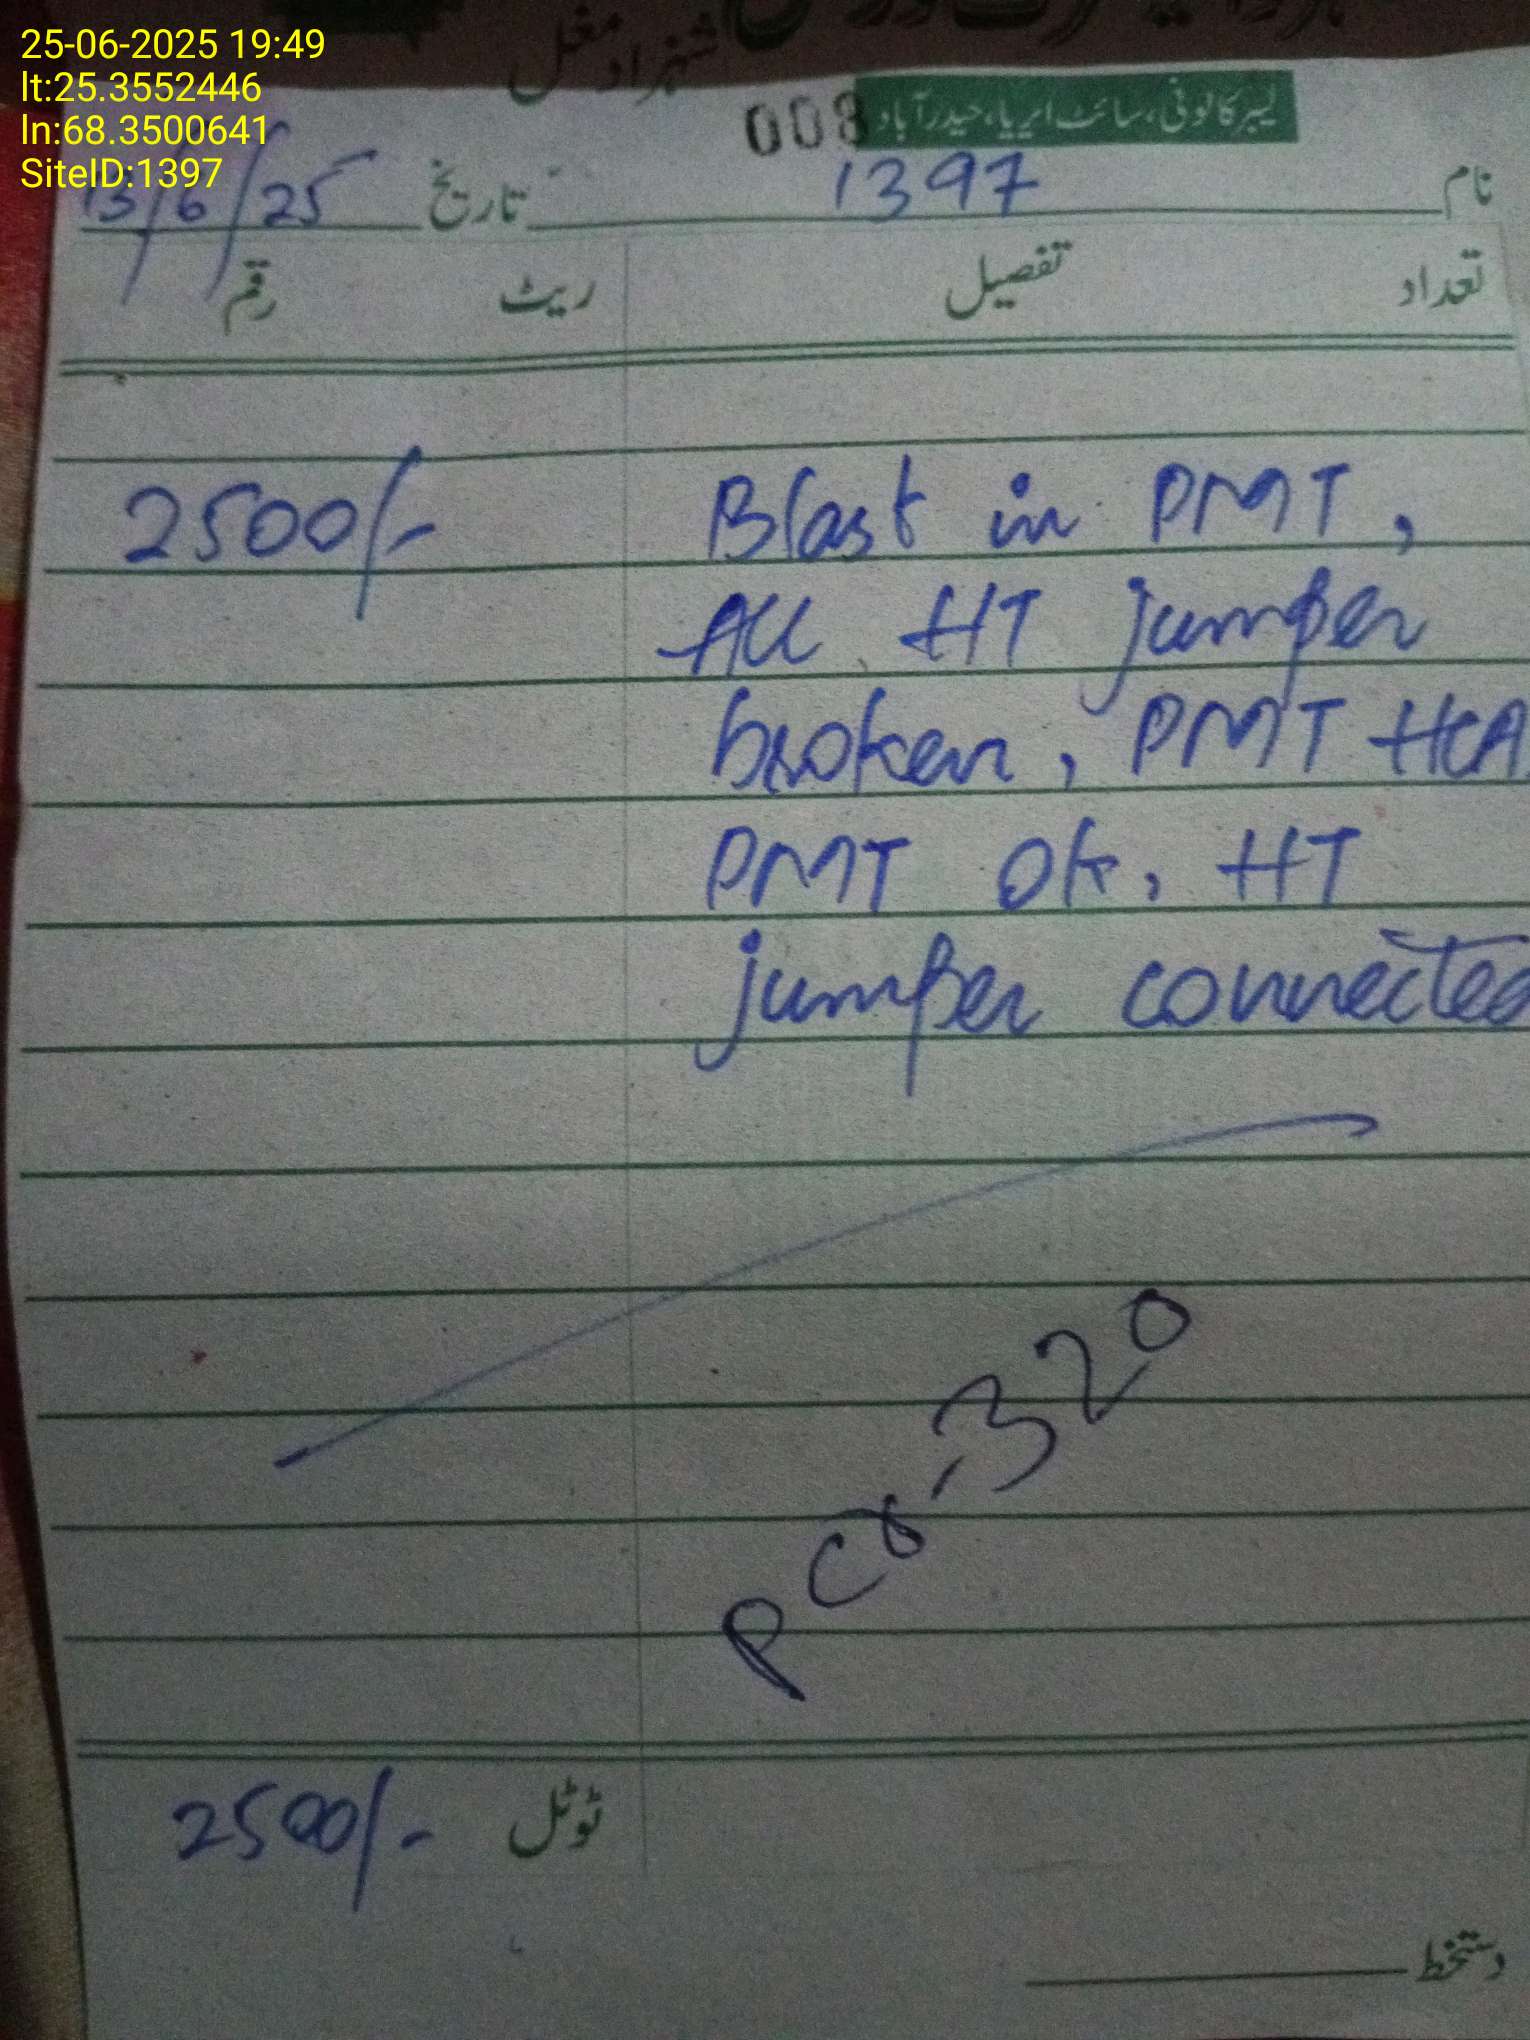 25-06-2025 19:49
lt:25.3552446
ln:68.3500641
SiteID:1397
شہزاد مغل
008 لیبر کالونی، سائٹ ایریا، حیدرآباد
نام 1397 تاریخ 13/6/25
تعداد تفصیل ریٹ رقم
Blast in PMT, 2500/-
All HT jumper
broken, PMT
PMT ok, HT
jumper connected
320
ٹوٹل 2500/-
دستخط